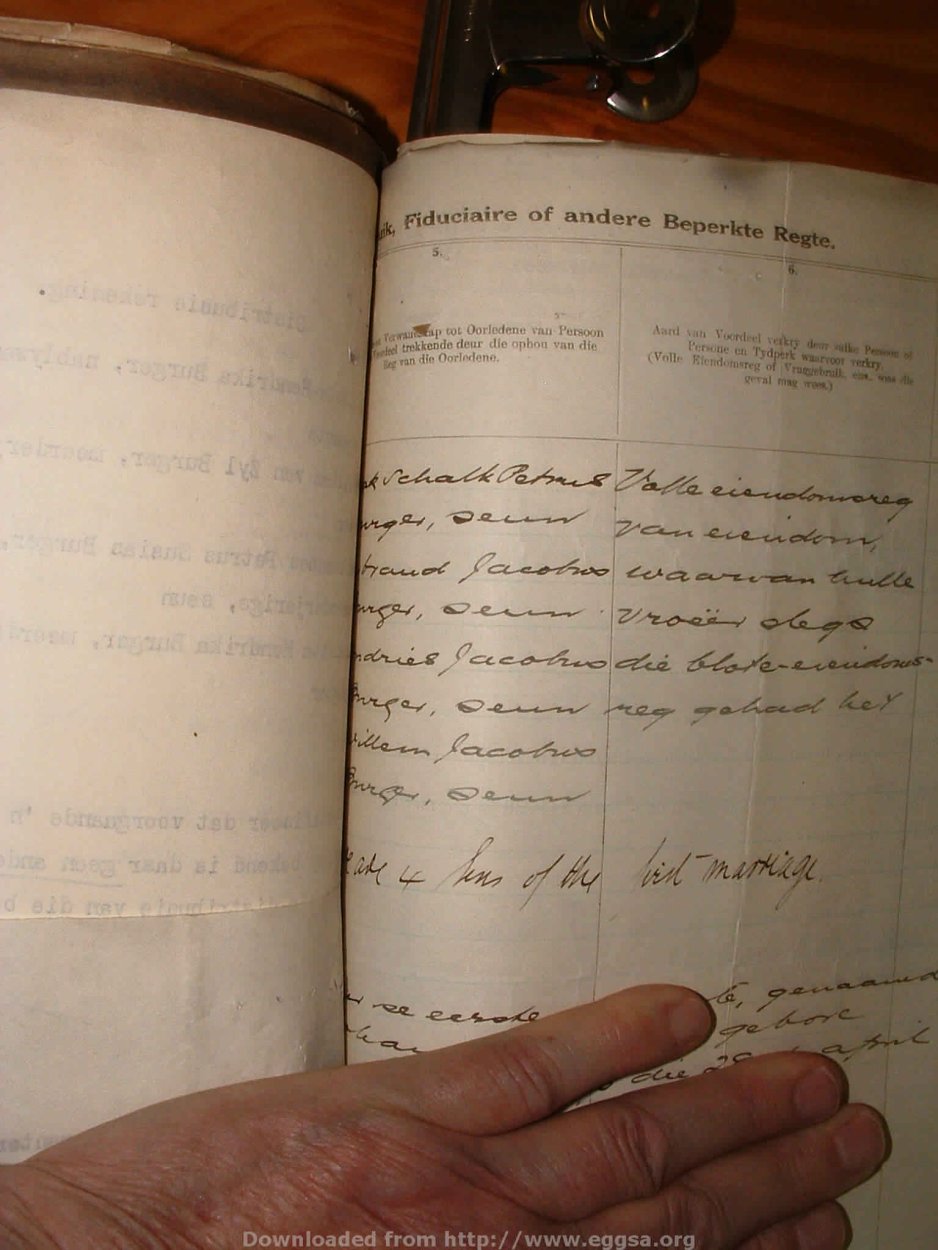 Fiduciaire of andere Beperkte Regte.
5.
6.
tot Oorledene van Persoon
trekkende deur die ophou van die
Reg van die Oorledene.
Aard van Voordeel verkry deur sulke Persoon of
Persone en Tydperk waarvoor verkry.
(Volle Eiendomsreg of Vruggebruik, ens., soos die
geval mag wees.)
Schalk Petrus
Burger, seun
Jacobus
Burger, seun
Andries Jacobus
Burger, seun
Willem Jacobus
Burger, seun
Volle eiendomsreg
van eiendom,
waarvan hulle
vroeër slegs
die blote-eiendoms-
reg gehad het
4 Sons of the first marriage.
se eerste
genaamd
gebore
die 29 April
Distribusie rekening.
Hendrika Burger, nablywende
van Zyl Burger, meerder
Petrus Susias Burger,
seun
Hendrika Burger, meerd
dat voorgaande 'n
bekend is daar geen ande
van die b
Downloaded from http://www.eggsa.org